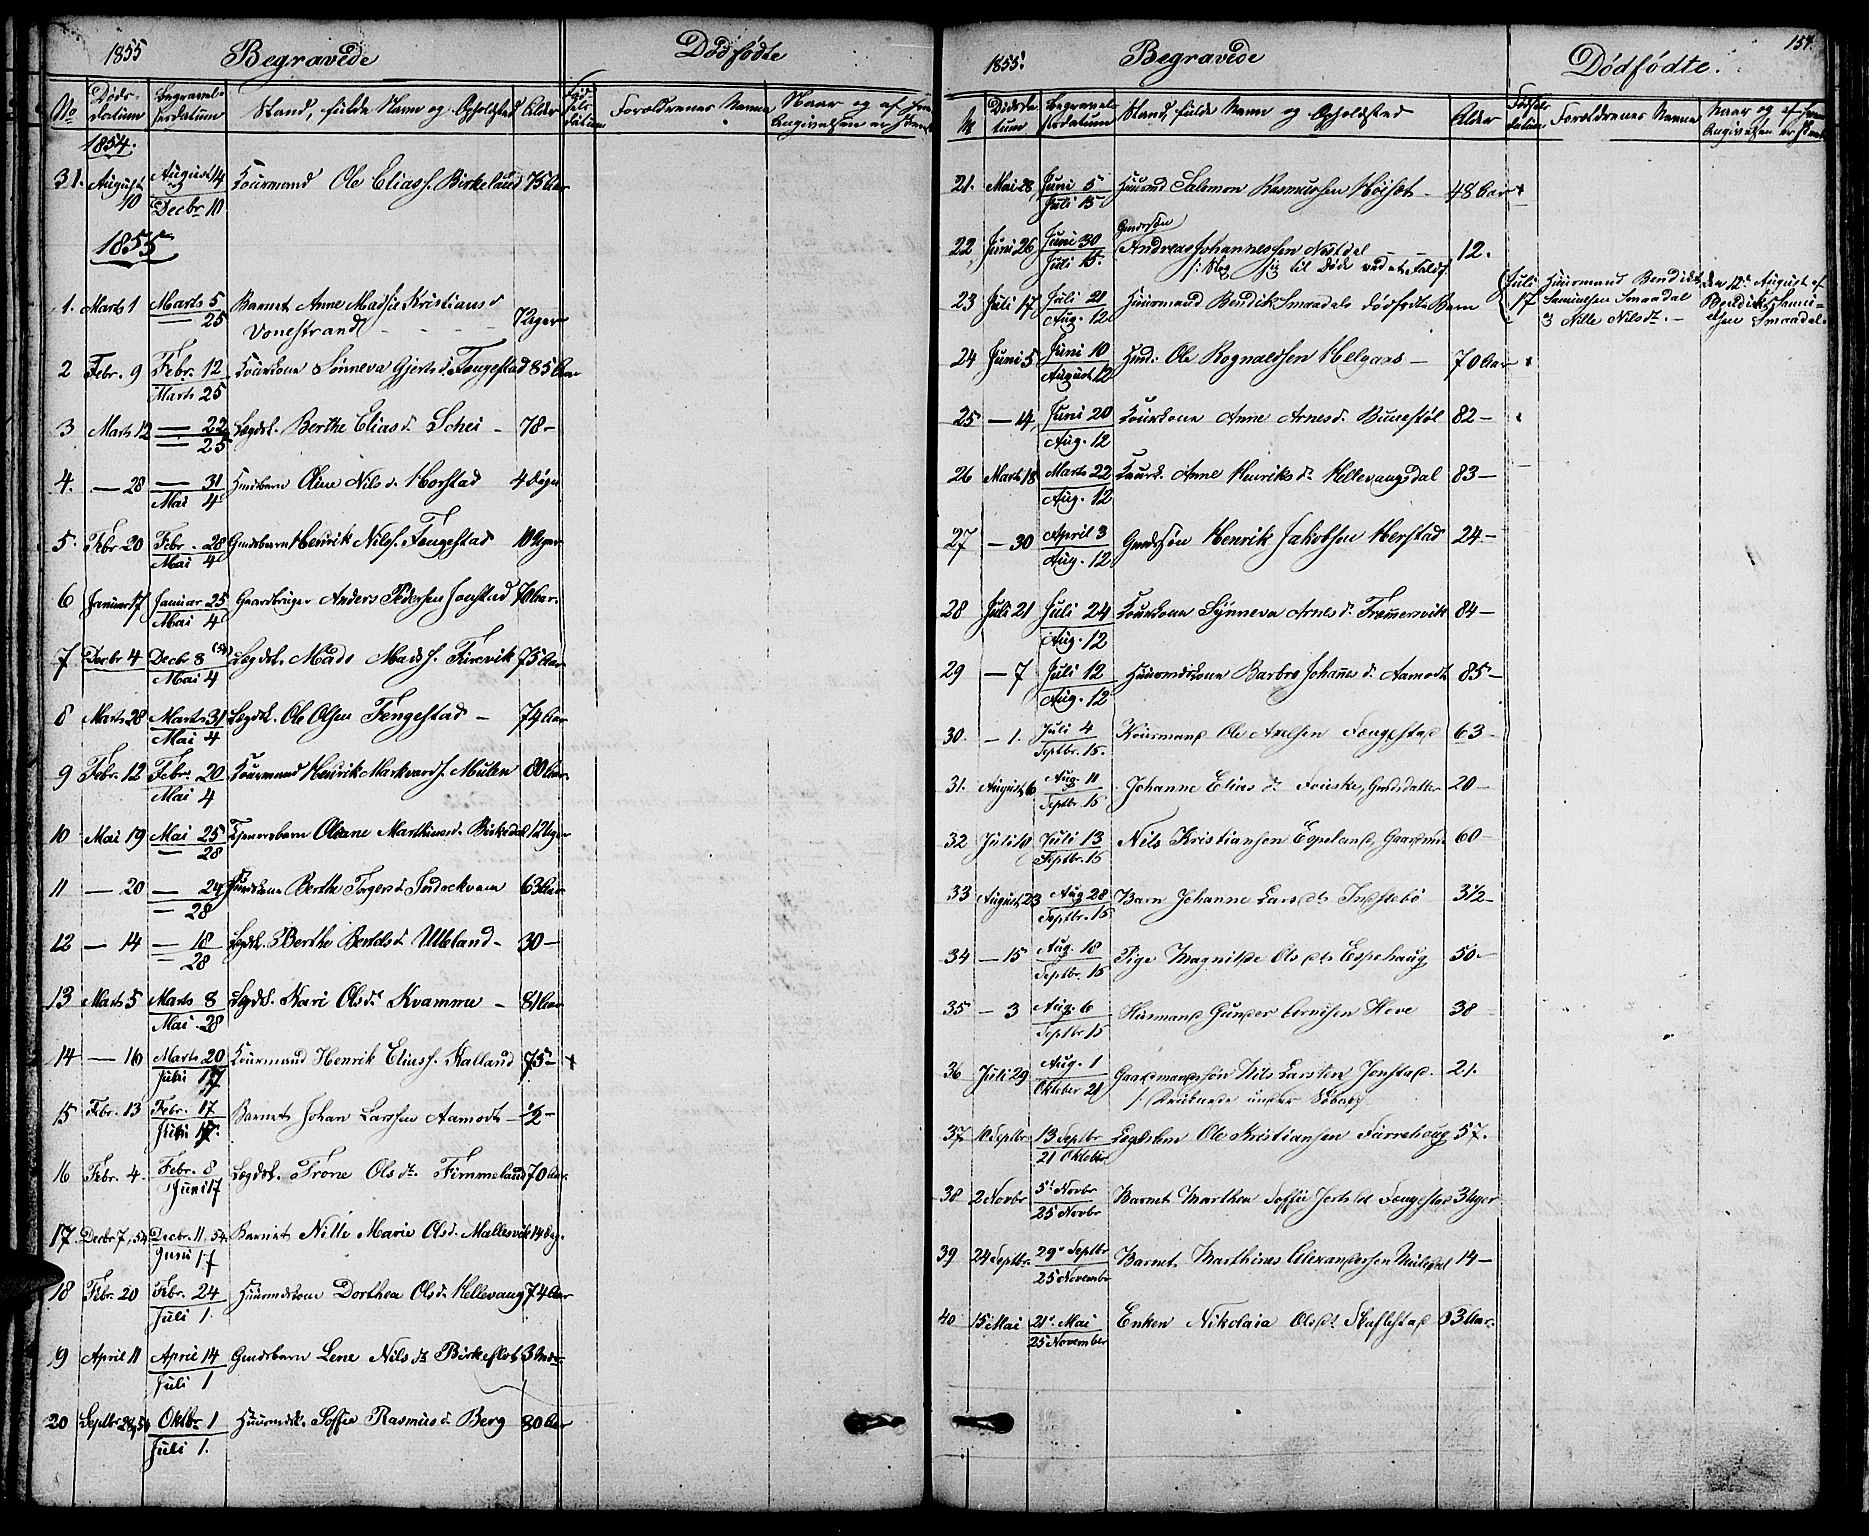 1855 Begravede Dødfødte
No Døds-Datum Begravelsesdatum Stand, fulde Navn og Opholdsted Alder Fødselsdatum Forældrenes Navne Naar og af hvem Angivelsen er skeet
1854.
31. August 10 August 14 Decbr 10 Kaarmand Ole Eliass. Birkeland 75 Aar
1855
1. Marts 1 Marts 5 — 25 Barnet Anne Kristiansd 7 Uger
Vonestrand
2 Febr. 9 Febr. 12 Marts 25 Kaarkone Sønneva Gjertsd. Fengestad 85 Aar
3 Marts 12 — 22 — 25 Lægdsl. Berthe Eliasd. Schei – 78 –
4. — 28 — 31 Mai 4 Olene Nilsd. Horstad 4 Dage
5. Febr 20 Febr. 28 Mai 4 Gmdsbarn Henrik Nilss. Fengestad 10 Uger
6 Januar 17 Januar 25 Mai 4 Gaardbruger Anders Pedersen Jonstad 70 Aar.
7 Decbr 4 Decbr 8 (54) Mai 4 Lægdsl. Mads Madss. 75 Aar
8 Marts 28 Marts 31 Mai 4 Lægdsl. Ole Olsen Fengestad – 74 Aar
9 Febr. 12 Febr. 20 Mai 4 Kaarmand Henrik Markvards. Mulen 80 Aar
10 Mai 19 Mai 25 — 28 Oliane Marthinusd. Birkedal 12 Uger
11 — 20 — 24 — 28 Berthe Torgersd. 63 Aar
12 — 14 — 18 — 28 Lægdsl. Berthe Bertelsd. Ulleland – 30 –
13 Marts 5 Marts 8 Mai 28 Lægdsl. Mari Olsd. Kvamme – 81 Aar
14 — 16 Marts 20 Juni 17 Kaarmand Henrik Eliass. Stalland 75 –
15 Febr. 13 Febr. 17 Juni 17. Barnet Johan Larssen Aamodt – 1/2 –
16 Febr. 4. Febr. 8 Juni 17 Lægdsl. Trone Olsdr. Timmeland 70 Aar.
17. Decbr 7, 54 Decbr. 11, 54. Juni 17 Barnet Nille Marie Olsd. Mallesvik 14 Dag.
18 Febr. 20 Febr. 24 Juli 1. Huusmdskone Dorthea Olsd. Hellevang 74 Aar
19 April 11 April 14 Juli 1 Gmdsbarn Lene Nilsdr. Birkeflot 3
20 Septbr 28, 54 Oktbr 1 Juli 1. Huusmdsk. Soffie Rasmusd. Berg 80 Aar
1855. Begravede Dødfødte. 154.
No Dødsdatum Begravelsesdatum Stand, fulde Navn og Opholdsted Alder Fødselsdatum Forældrenes Navne Naar og af hvem Angivelsen er skeet
21. Mai 28 Juni 5 Juli 15 Huusmd Salomon Rasmussen – 48 Aar
22 Juni 26 Juni 30 Juli 15. Gmdssøn Andreas Johannessen Nestdal – – 12.
/: Slog sig til Døde ved et Fald /:
23 Juli 17 Juli 21 Aug. 12 Huusmand Bendik Smaadals dødfødte Barn Juli 17 Huusmand Bendikt Samuelsen Smaadal & Nille Nilsdr. – den 12te August af Bendikt Samuelsen Smaadal.
24 Juni 5 Juni 10 August 12 Hmd: Ole Rognaldsen Helgaas – 70 Aar
25 — 14 Juni 20 Aug. 12 Kaarkone Anne Arnesd. 82 –
26 Marts 18 Marts 22 Aug. 12 Anne Henriksd. Hellevangsdal 83 –
27 — 30 April 3 Aug. 12 Gmdssøn Henrik Jakobsen Herstad 24 –
28 Juli 21 Juli 24 Aug. 12 Kaarkone Synneva Arnesd. Frammersvik 84 –
29 — 7 Juli 12 Aug. 12 Huusmdskone Barbro Johansd. Aamodt 85 –
30. — 1. Juli 4 Septbr. 15. Kaarmand Ole Axelsen Fengestad 63 –
31. August 6 Aug. 11 Septbr. 15 Johanne Eliasdr. Fauske, Gmdsdatter 20 –
32 Juli 10 Juli 13 Septbr. 15 Nils Kristiansen Espeland, Gaardmd 60 –
33 August 23 Aug 28 Septbr. 15 Barn Johanne Larsdr. Indstebø 3 1/2 –
34 — 15 Aug. 18 Septbr. 15 Pige Magnilde Olsdr. Espehaug 50 –
35 — 3 Aug. 6 Septbr 15 Huusmand Gunder Hove 38
36 Juli 29 Aug. 1 Oktober 21 Gaardmandssøn Nils Larssen Jonstad. 21.
/: Druknede under :/
37 10 Septbr 13 Septbr 21 Oktober Lægdslem Ole Kristiansen Farrehoug 57.
38 2 Novbr 5te Novbr 25 Novbr Barnet Marthea Soffie Fengestad 3 Uger
39 24 Septbr. 29. Septbr 25 November Barnet Marthinus Alexandersen 14 –
40 15 Mai 21. Mai 25 November Enken Nikolaia Olsdr. Skaflestad 3 Aar.